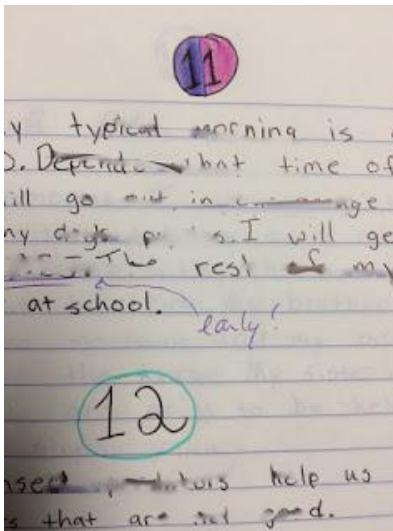 11
y typical morning is
Depend what time of
ill go out in
my dog's I will ge
The rest of my
at school.
early!
12
nsect predators help us
s that are not good.